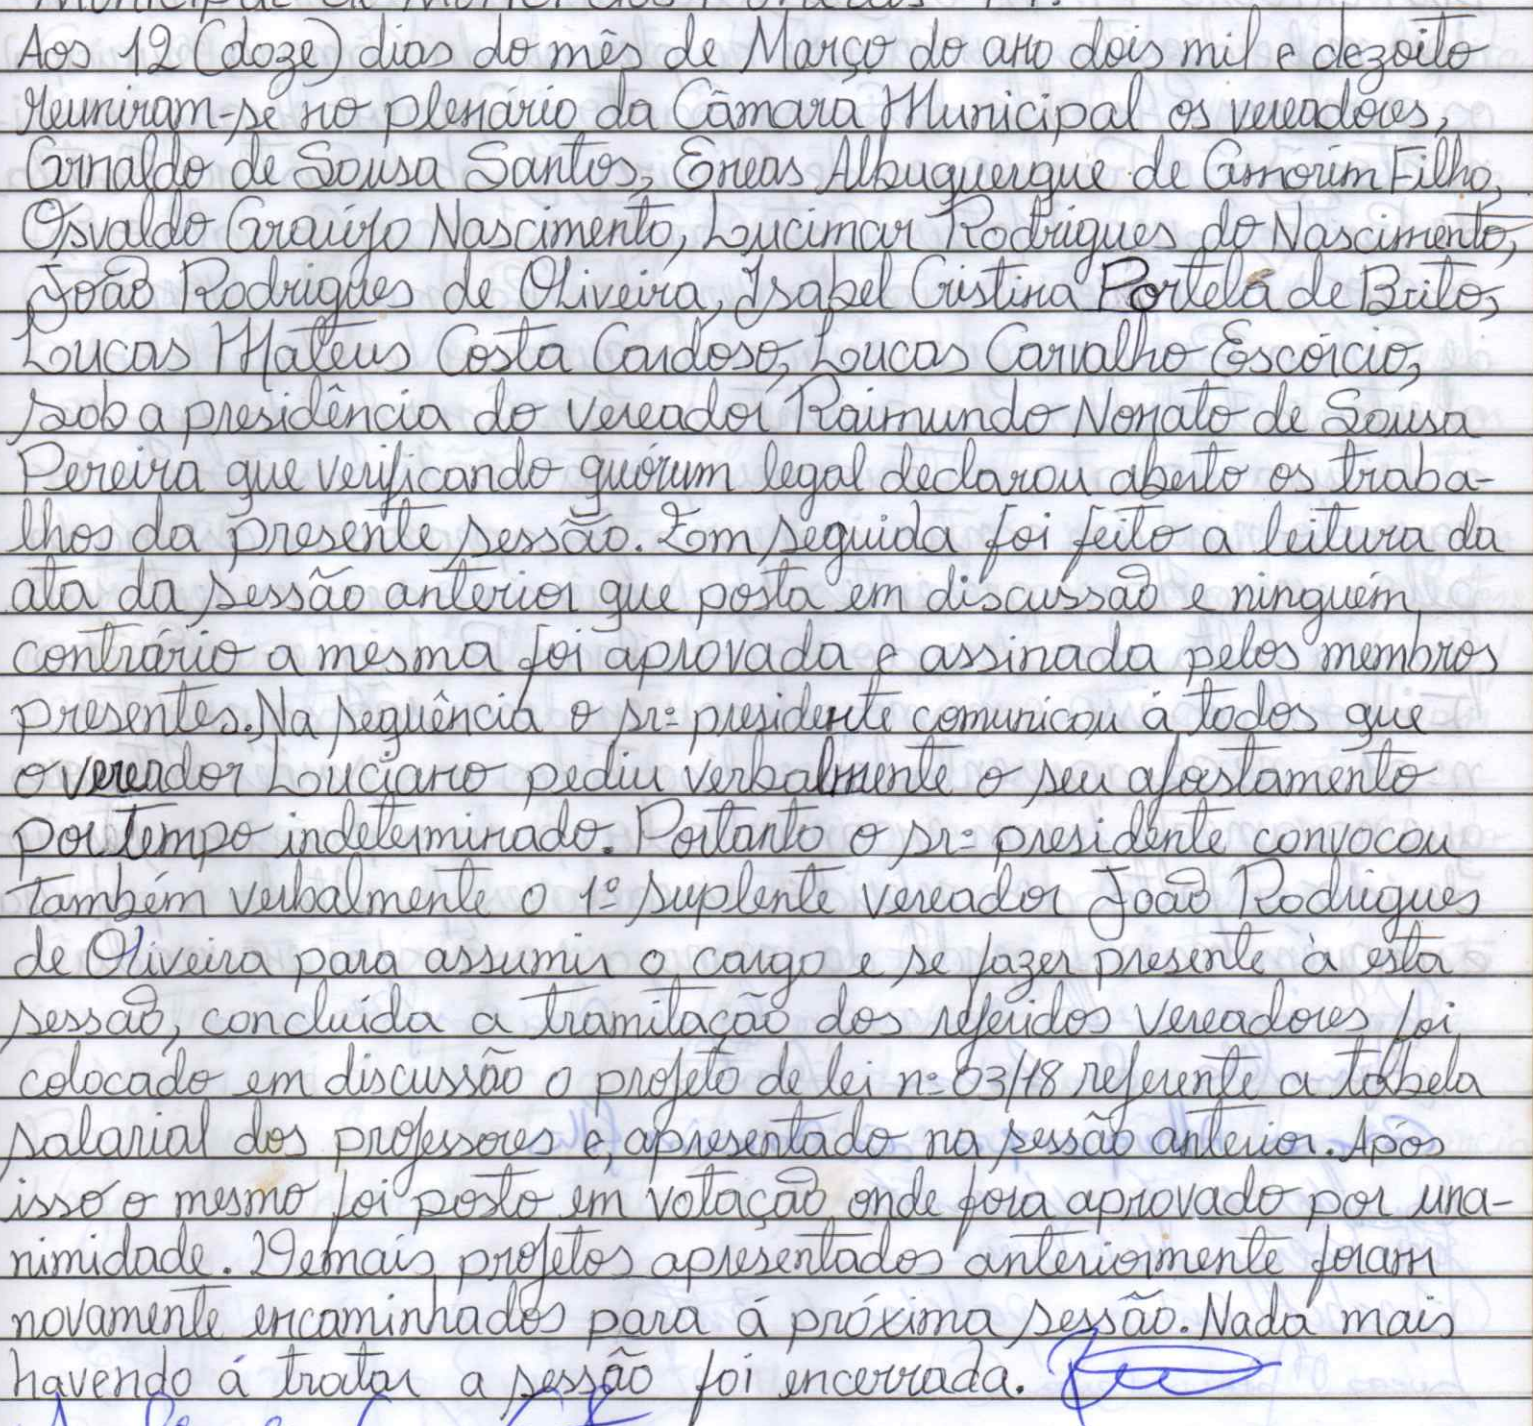 Aos 12 (doze) dias do mês de Março do ano dois mil e dezoito
reuniram-se no plenário da Câmara Municipal os vereadores,
Arnaldo de Sousa Santos, Eneas Albuquerque de Amorim Filho,
Osvaldo Araújo Nascimento, Lucimar Rodrigues do Nascimento,
João Rodrigues de Oliveira, Isabel Cristina Portela de Brito,
Lucas Mateus Costa Cardoso, Lucas Carvalho Escórcio,
sob a presidência do vereador Raimundo Nonato de Sousa
Pereira que verificando quórum legal declarou aberto os traba-
lhos da presente sessão. Em seguida foi feito a leitura da
ata da sessão anterior que posta em discussão e ninguém
contrário a mesma foi aprovada e assinada pelos membros
presentes. Na sequência o srº presidente comunicou á todos que
o vereador Luciano pediu verbalmente o seu afastamento
por tempo indeterminado. Portanto o srº presidente convocou
também verbalmente o 1º suplente vereador João Rodrigues
de Oliveira para assumir o cargo e se fazer presente à esta
sessão, concluída a tramitação dos referidos vereadores foi
colocado em discussão o projeto de lei nº 03/18 referente a tabela
salarial dos professores e, apresentado na sessão anterior. Após
isso o mesmo foi posto em votação onde fora aprovado por una-
nimidade. Demais projetos apresentados anteriormente foram
novamente encaminhados para á próxima sessão. Nada mais
havendo á tratar a sessão foi encerrada.